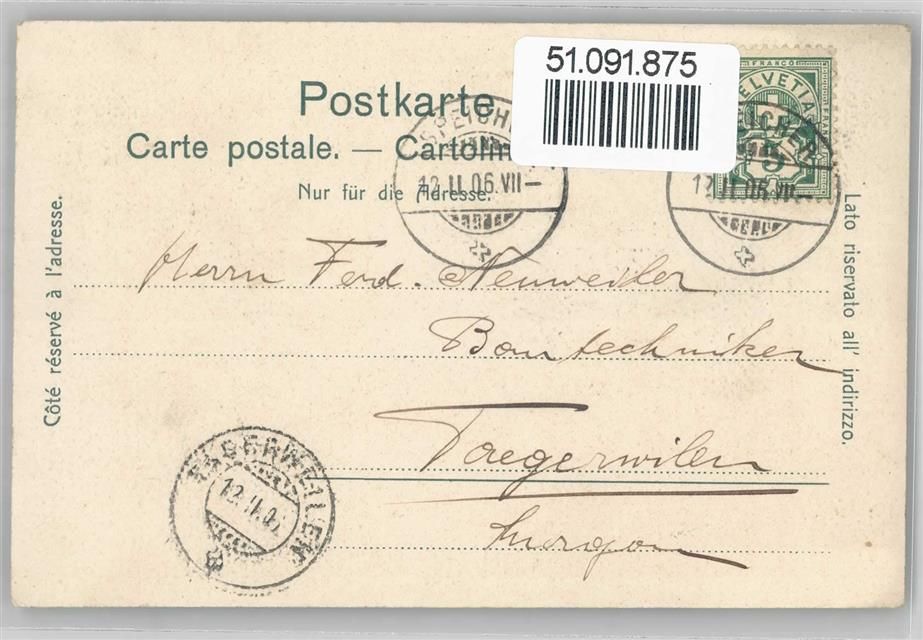 51.091.875
FRANCO
HELVETIA
Postkarte
SPEICHER
SPEICHER
Carte postale. — Cartolin
12.II.06.VII—
12.II.06.VII—
Nur für die Adresse.
Côté réservé à l'adresse.
Lato riservato all' indirizzo.
Herrn Ferd. Neuweiler
Bautechniker
Taegerwilen
TÄGERWEILEN
12.II.06
Thurgau